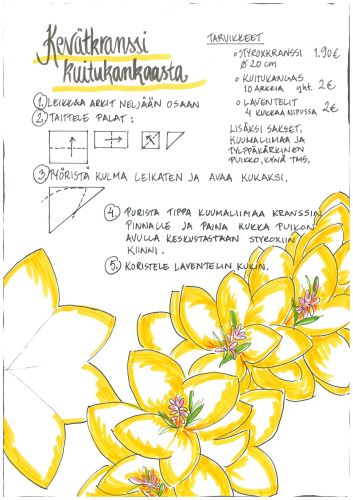 Kevätkranssi
kuitukankaasta
TARVIKKEET
• STYROXKRANSSI 1.90€
Ø 20 cm
• KUITUKANGAS
10 ARKKIA yht. 2€
• LAVENTELIT
4 KUKKAA NIPUSSA 2€
LISÄKSI SAKSET,
KUUMALIIMAA JA
TYLPPÄKÄRKINEN
PUIKKO, KYNÄ TMS.
1. LEIKKAA ARKIT NELJÄÄN OSAAN
2. TAITTELE PALAT:
3. PYÖRISTÄ KULMA LEIKATEN JA AVAA KUKAKSI.
4. PURISTA TIPPA KUUMALIIMAA KRANSSIN
PINNALLE JA PAINA KUKKA PUIKON
AVULLA KESKUSTASTAAN STYROXIIN
KIINNI.
5. KORISTELE LAVENTELIN KUKIN.